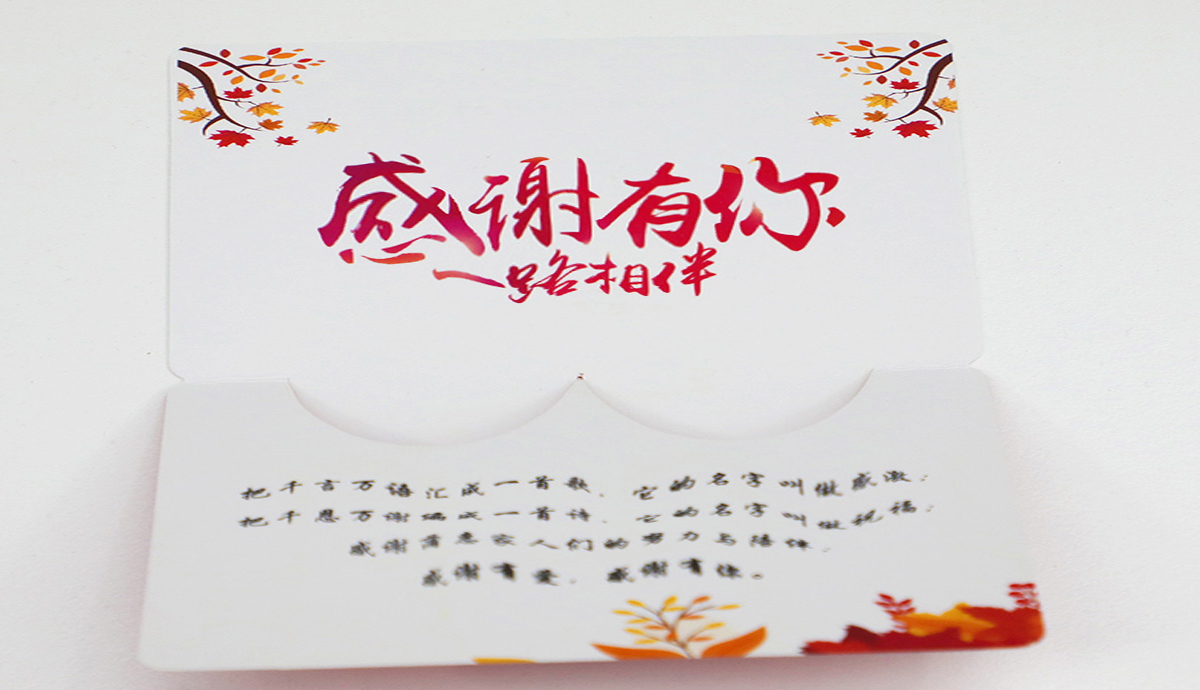 感谢有你
一路相伴
把千言万语汇成一首歌，它的名字叫做感激；
把千恩万谢编成一首诗，它的名字叫做祝福；
感谢蒲惠家人们的努力与陪伴，
感谢有爱，感谢有你。